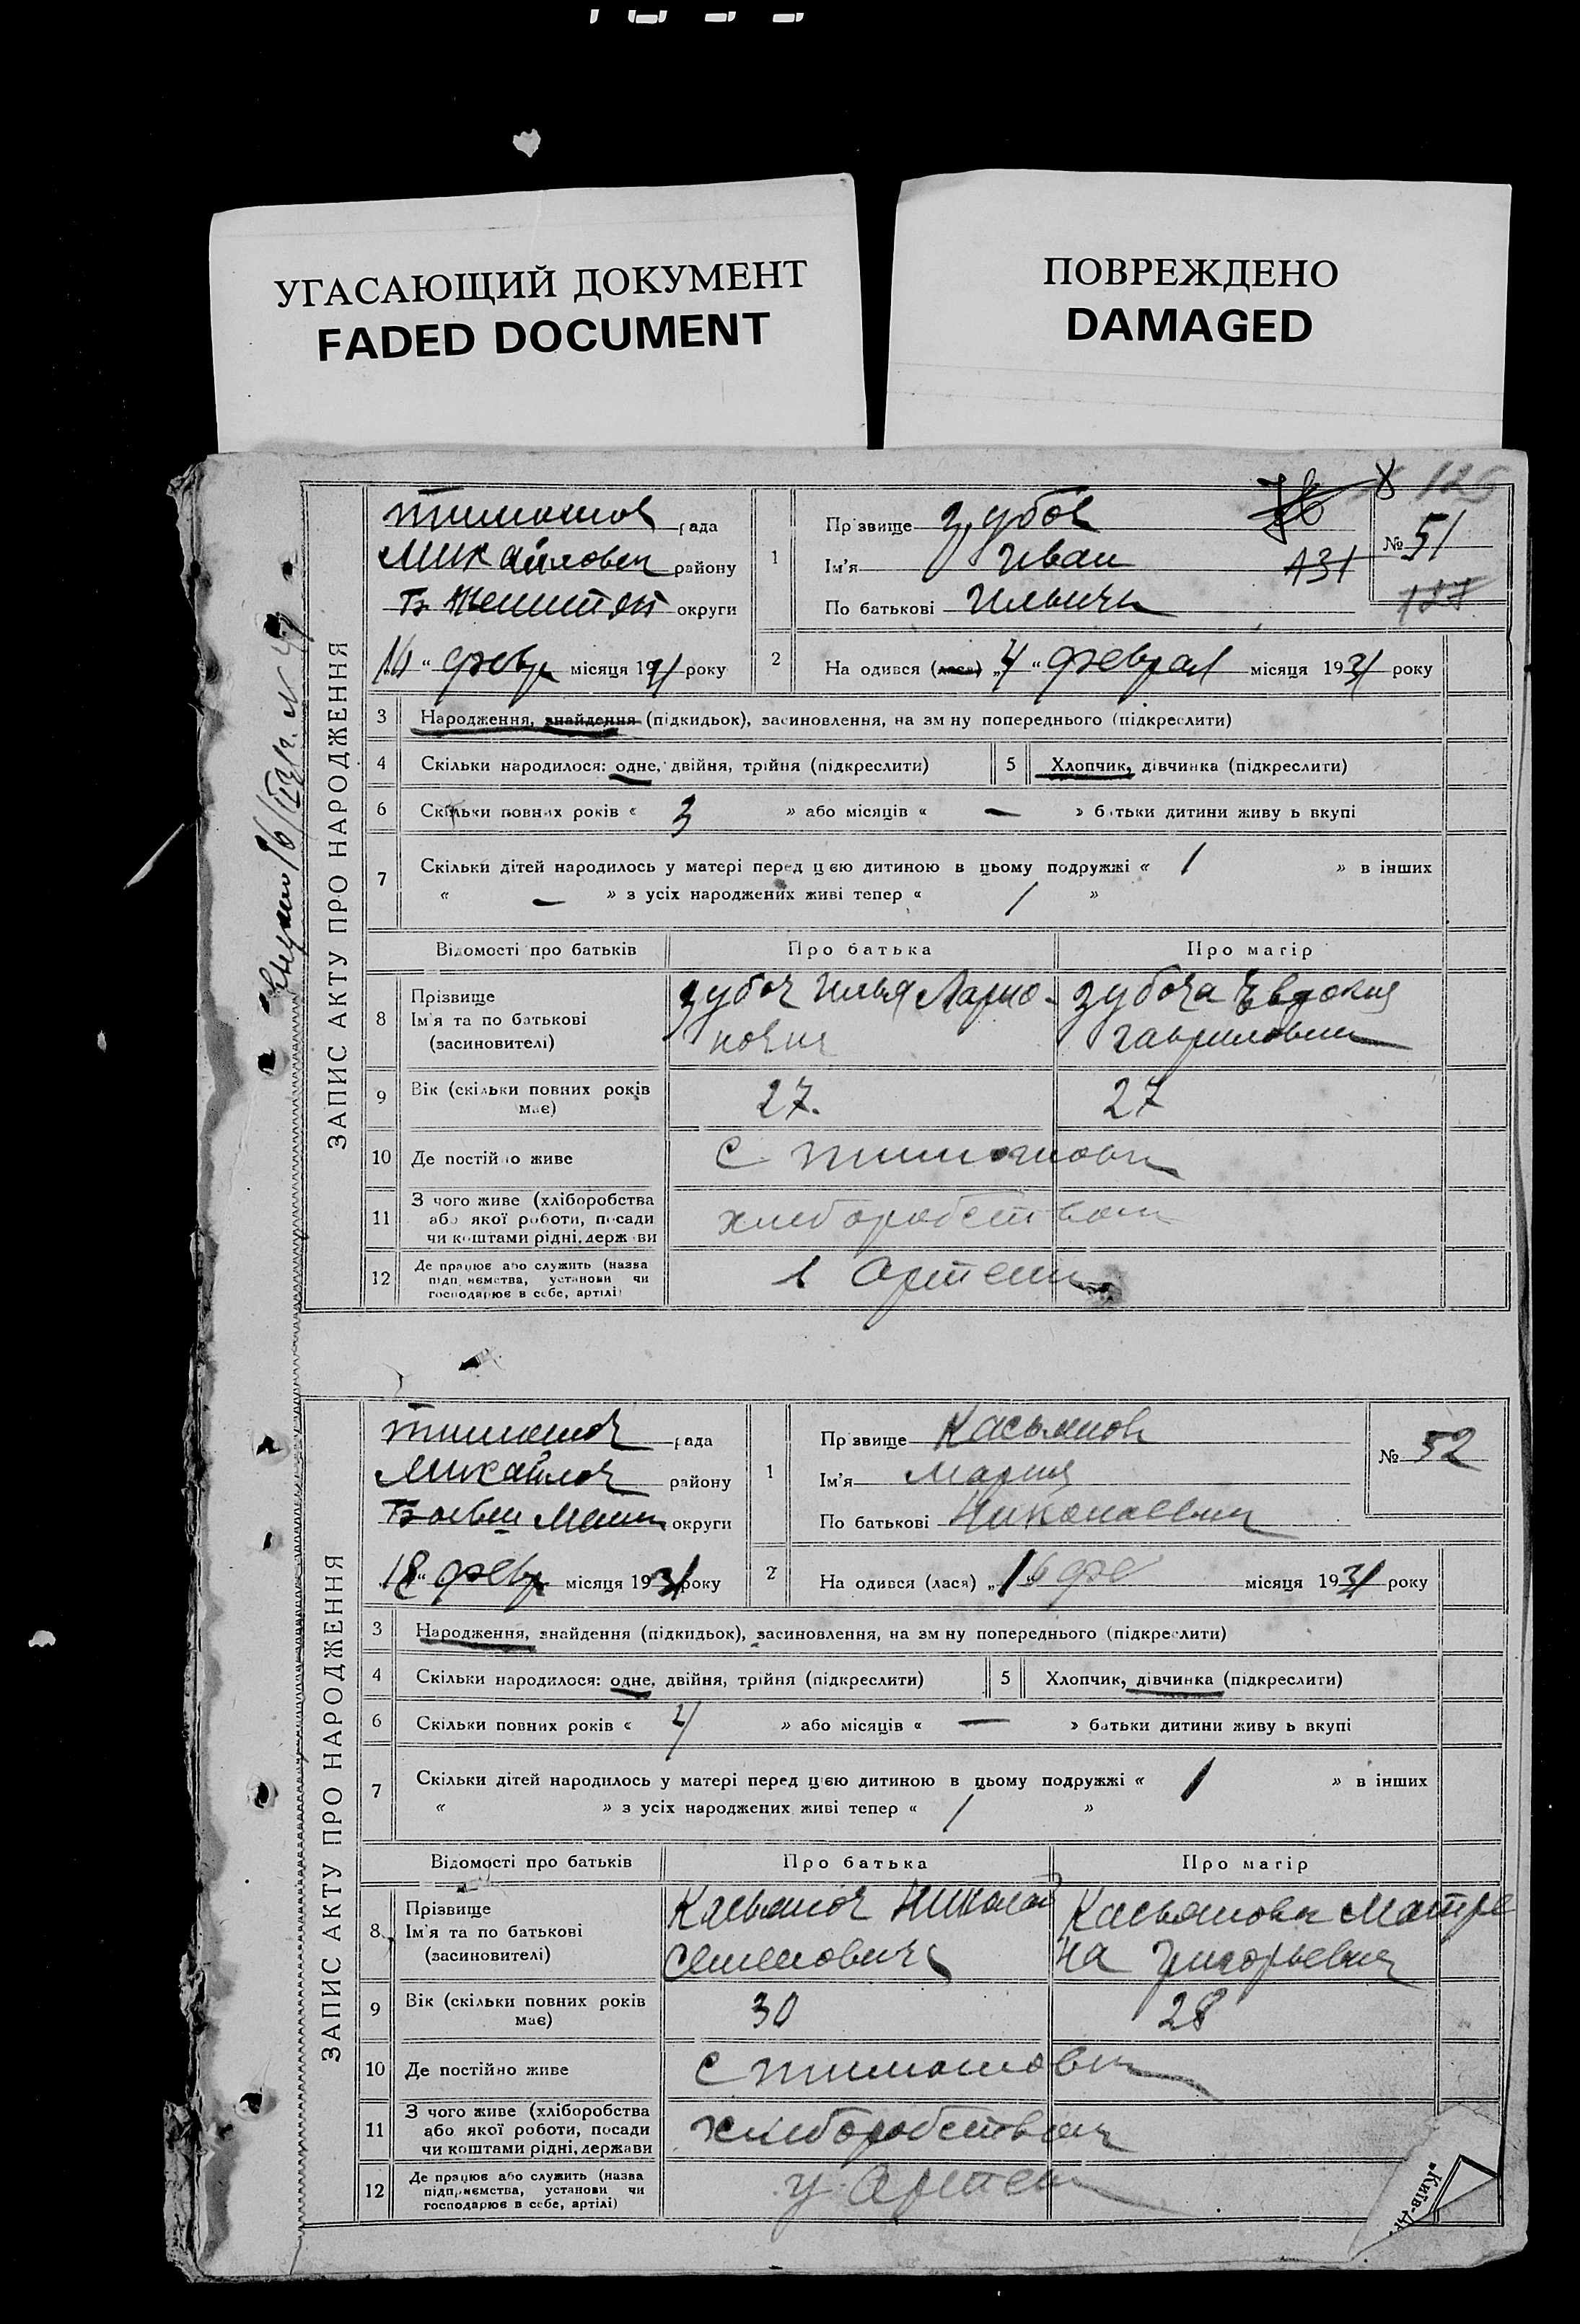 УГАСАЮЩИЙ ДОКУМЕНТ
FADED DOCUMENT
ПОВРЕЖДЕНО
DAMAGED
ЗАПИС АКТУ ПРО НАРОДЖЕННЯ
Тимошов рада
Михайловск району
округи
126
1 Прізвище Зубов
Ім'я Иван
131
По батькові Ильич
№ 51
" февр місяця 1931 року
2 На одився (лася) „4" феврал місяця 1931 року
3 Народження, знайдення (підкидьок), засиновлення, на зм ну попереднього (підкреслити)
4 Скільки народилося: одне, двійня, трійня (підкреслити) 5 Хлопчик, дівчинка (підкреслити)
6 Скільки повних років « 3 » або місяців « — » батьки дитини живу ь вкупі
7 Скільки дітей народилось у матері перед цією дитиною в цьому подружжі « 1 » в інших
« — » з усіх народжених живі тепер « 1 »
Відомості про батьків Про батька Про матір
8 Прізвище
Ім'я та по батькові
(засиновителі)
Зубов Илья Ларио-
Зубова Евдокия
Гавриловна
9 Вік (скільки повних років
має)
27.
27
10 Де постійно живе
с Тимошовки
11 З чого живе (хліборобства
або якої роботи, посади
чи коштами рідні, держави
хлеборобством
12 Де працює або служить (назва
підприємства, установи чи
господарює в себе, артілі)
в Артели
ЗАПИС АКТУ ПРО НАРОДЖЕННЯ
Тимошов рада
Михайлов району
округи
1 Прізвище Касьянов
Ім'я Мария
По батькові Николаевна
№ 52
„18" февр місяця 1931 року
2 На одився (лася) фе місяця 1931 року
3 Народження, знайдення (підкидьок), засиновлення, на зм ну попереднього (підкреслити)
4 Скільки народилося: одне, двійня, трійня (підкреслити) 5 Хлопчик, дівчинка (підкреслити)
6 Скільки повних років « » або місяців « — » батьки дитини живу ь вкупі
7 Скільки дітей народилось у матері перед цією дитиною в цьому подружжі « 1 » в інших
« » з усіх народжених живі тепер « 1 »
Відомості про батьків Про батька Про матір
8 Прізвище
Ім'я та по батькові
(засиновителі)
Касьянов Николай
Семенович
Касьянова Матре
на Григорьевна
9 Вік (скільки повних років
має)
30
28
10 Де постійно живе
с Тимошовки
11 З чого живе (хліборобства
або якої роботи, посади
чи коштами рідні, держави
хлеборобством
12 Де працює або служить (назва
підприємства, установи чи
господарює в себе, артілі)
у Артели